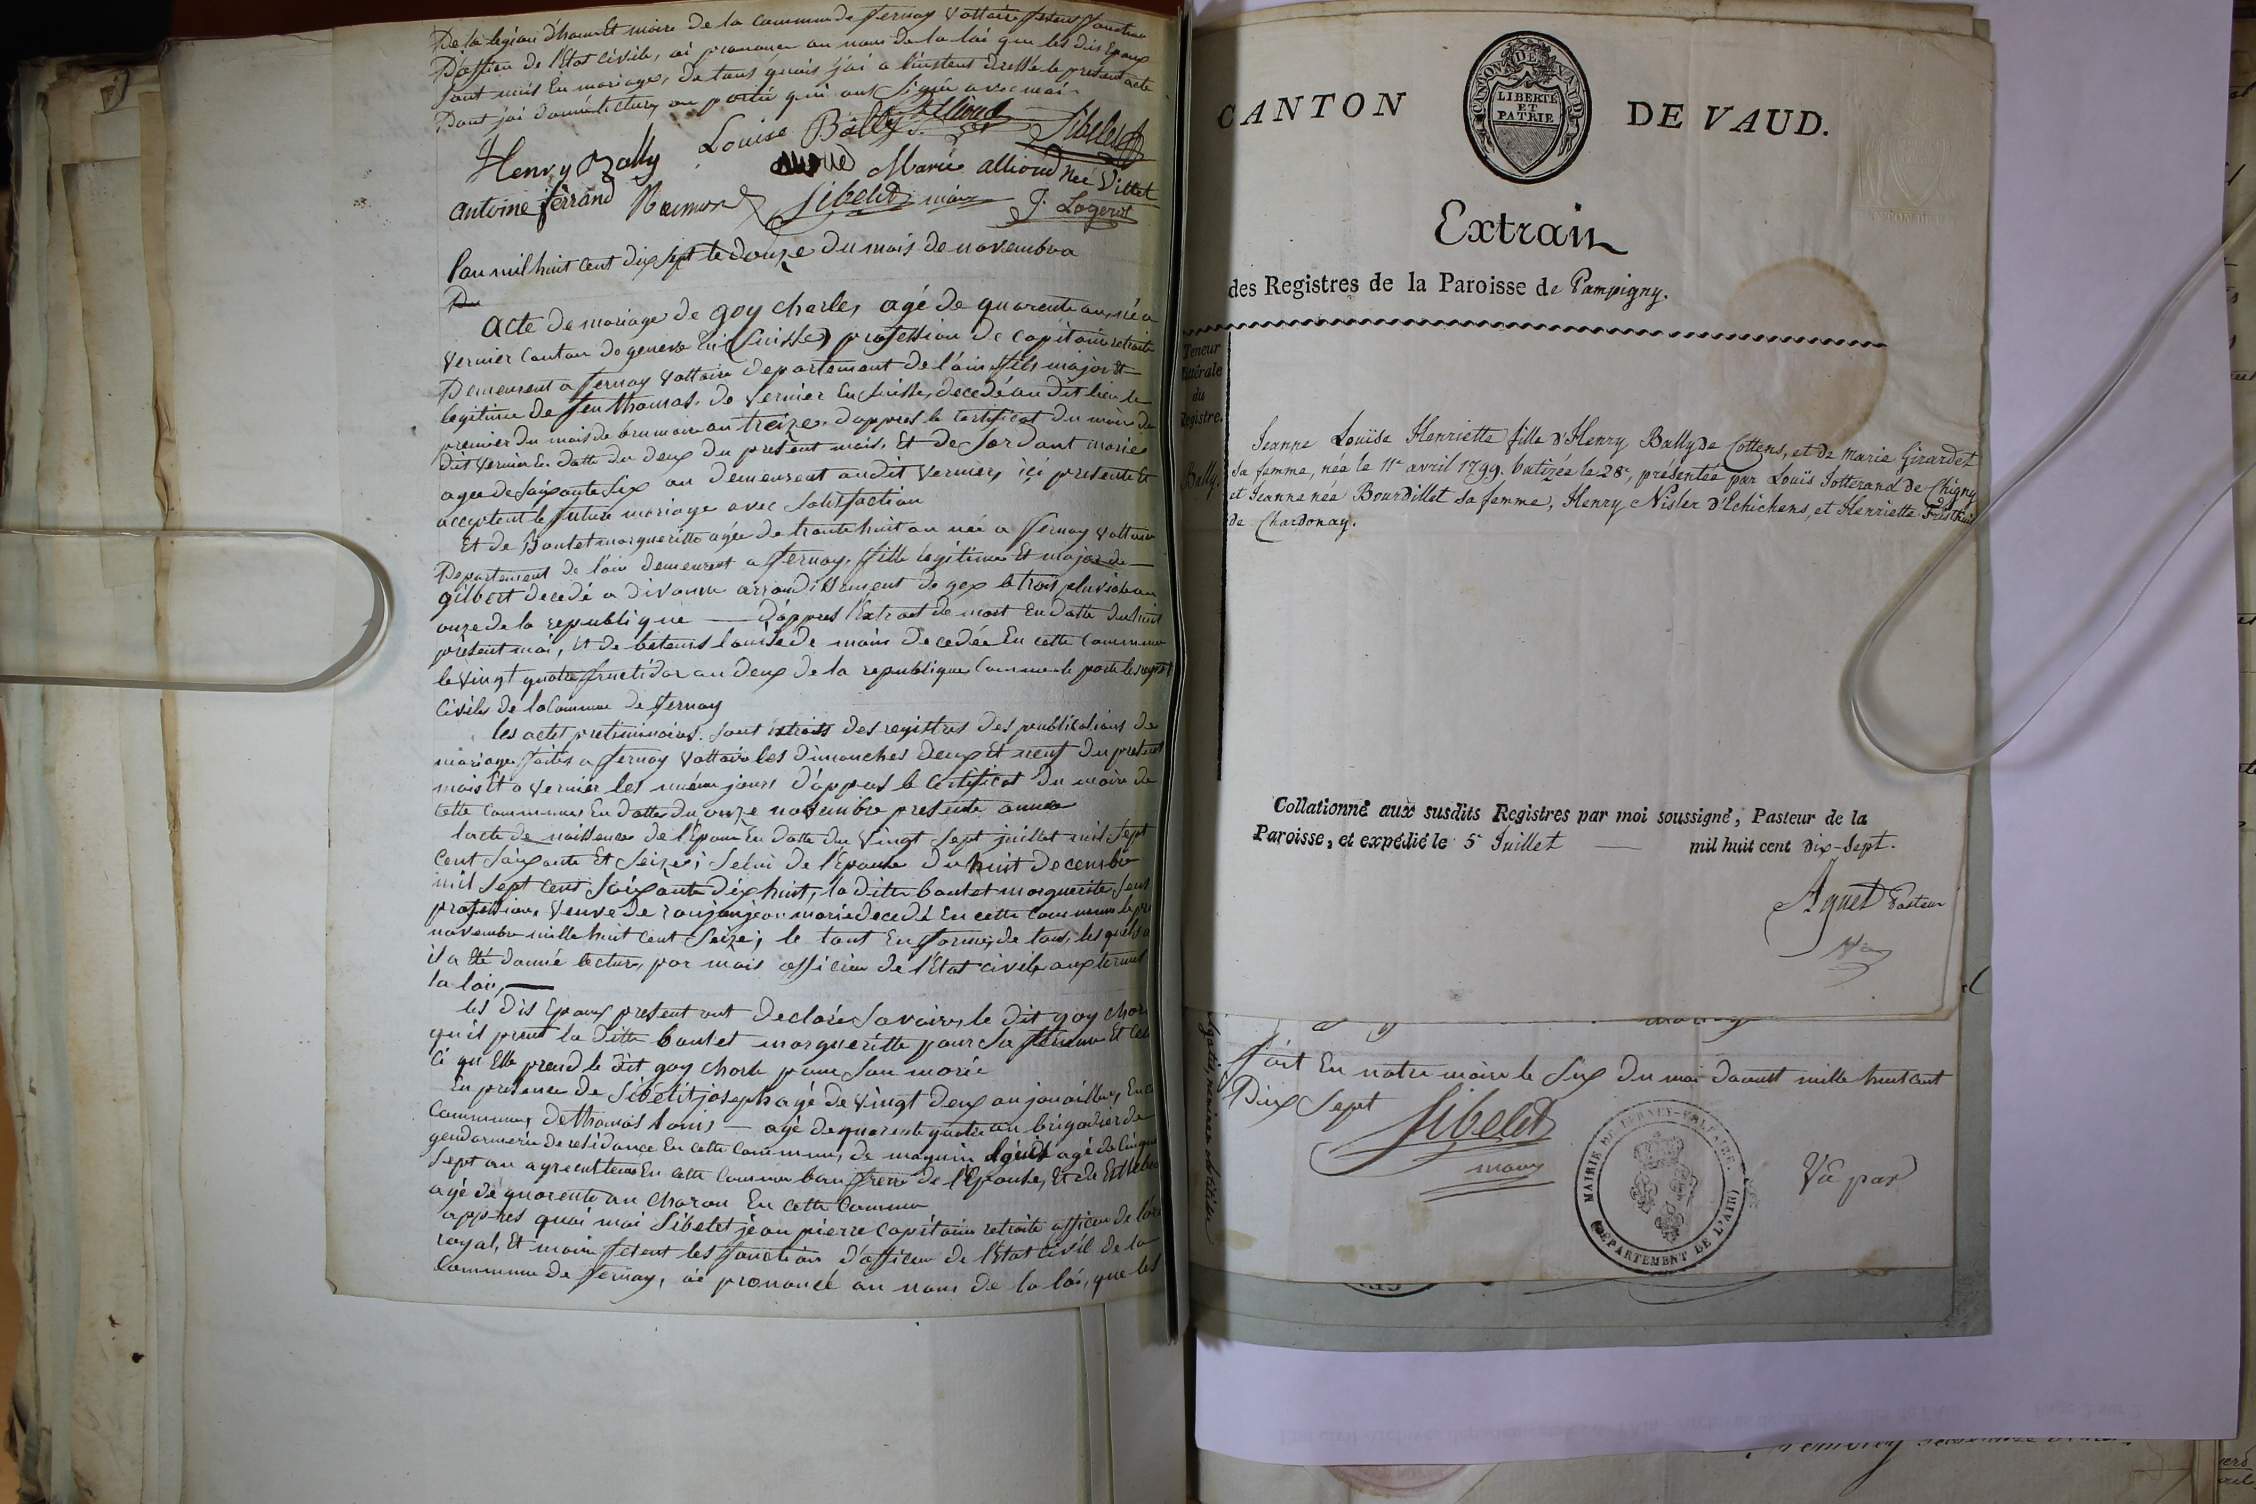 De la légion d'honn Et maire de la commune de fernay Voltaire fesent fonction
D'officier de l'Etat civile, ai prononcer au nom De la loi que les dis Epoux
sont unis En mariage, de tous quois j'ai a l'instent dressé le present acte
Dont j'ai donné lecture, au partie qui ont signée avec moi
Henry Bally Louise Bally Allioud Sibelet
Marie allioud née Villet
antoine ferrand Sibelet maire J. Logerot
L'an mil huit cent dix sept le douze du mois de novembre
Acte de mariage de goy charles, agé de quarente ans, né a
Vernier Canton de geneve En (Suisse) profession de capitaine retraite
Demeurent a fernay Voltaire departement de l'ain fils major Et
legitime de feu thomas de Vernier En Suisse, decedé au dit lieu le
premier du mois de brumaire an treize, d'appres le certificat du maire de
Dit Vernier En datte du deux du present mois, Et de Jordant marie
agée de soixante six an demeurent au dit Vernier, içi presente Et
acceptent le futur mariage avec satisfaction
Et de Boutet margueritte agée de trente huit an née a fernay Voltaire
Departement de l'ain demeurent a fernay, fille legitime Et major de
gilbert decedé a divonne arrondissement de gex le trois pluviose an
onze de la republique — d'appres l'Extrait de mort En datte du huit
présent moi, et de louise de decedée En cette Commune
le vingt quatre fructidor an deux de la republique Comme le porte les regist
Civiles de la Commune de fernay
les actes preliminaires sont extraits des registres des publications de
mariage faites a fernay Voltaire les dimanches deux Et neuf du present
mois Et a Vernier les mêmes jours d'appres le certificat du maire de
cette commune En datte du onze novembre presente année
l'acte de naissence de l'Epoux En datte du Vingt sept juillet mil sept
cent soixante Et seize; selui de l'Epouse du huit decembre
mil sept cent soixante dix huit, la ditte boutet marguerite, sens
profession, Veuve de jean marie decedé En cette commune le
novembre mille huit cent seize; le tout En forme, de tous les quels
il a Eté donné lecture, par mois officier de l'Etat civile aux termes
la loi,
les dis Epoux present ont declaré savoir, le dit goy char
qu'il prend la ditte boutet margueritte pour sa femme Et cel
ci qu'Elle prend le dit goy charle pour son marie
En presence de Sibelit joseph agé de Vingt deux an joualier, En
Commune, de thomas louis — agé de quarente quatre an brigadier de
gendarmerie de residance En cette commune, de agé de cinqu
sept an agriculteur En cette commune beau frere de l'Epouse, Et de
agé de quarente an charon En cette Commune
appres quoi moi Sibelet jean pierre capitaine retraité officier de l'or
royal, Et maire fesent les fonction d'officier de l'Etat civil de la
Commune de fernay, ai prononcé au nom de la loi, que les
CANTON DE VAUD.
CANTON DE VAUD
LIBERTÉ
ET
PATRIE
Extrait
des Registres de la Paroisse de Pampigny.
Teneur
littérale
du
Registre.
Bally.
Jeanne Louïse Henriette fille d'Henry Bally de Cottens, et de Marie Girardet
sa femme, née le 11e avril 1799. batizée le 28e, présentée par Louïs Jotterand de Chigny
et Jeanne née Bourdillet sa femme, Henry Nisler d'Echichens, et Henriette
de Chardonay.
Collationné aux susdits Registres par moi soussigné, Pasteur de la
Paroisse, et expédié le 5e Juillet — mil huit cent dix-sept.
Aguet Pasteur
fait En notre mairie le six du moi daoust mille huit cent
Dix sept Sibelet
maire
MAIRIE DE FERNEY-VOLTAIRE.
(DEPARTEMENT DE L'AIN)
Vu par